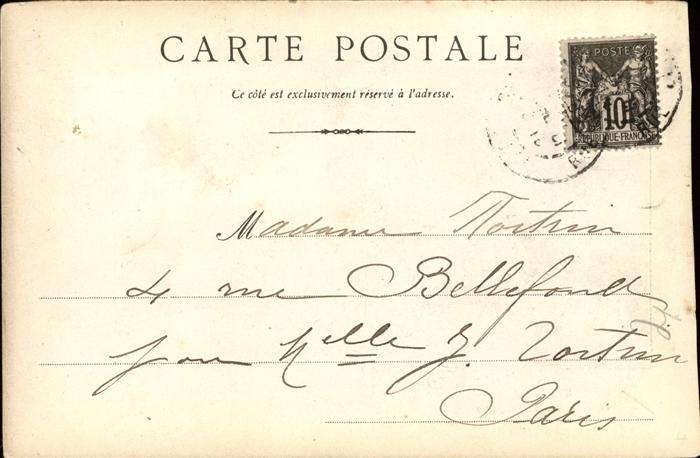 CARTE POSTALE
Ce côté est exclusivement réservé à l'adresse.
POSTE
10
REPUBLIQUE-FRANÇAISE
Madame
4 rue Bellefond
pour Melle J.
Paris